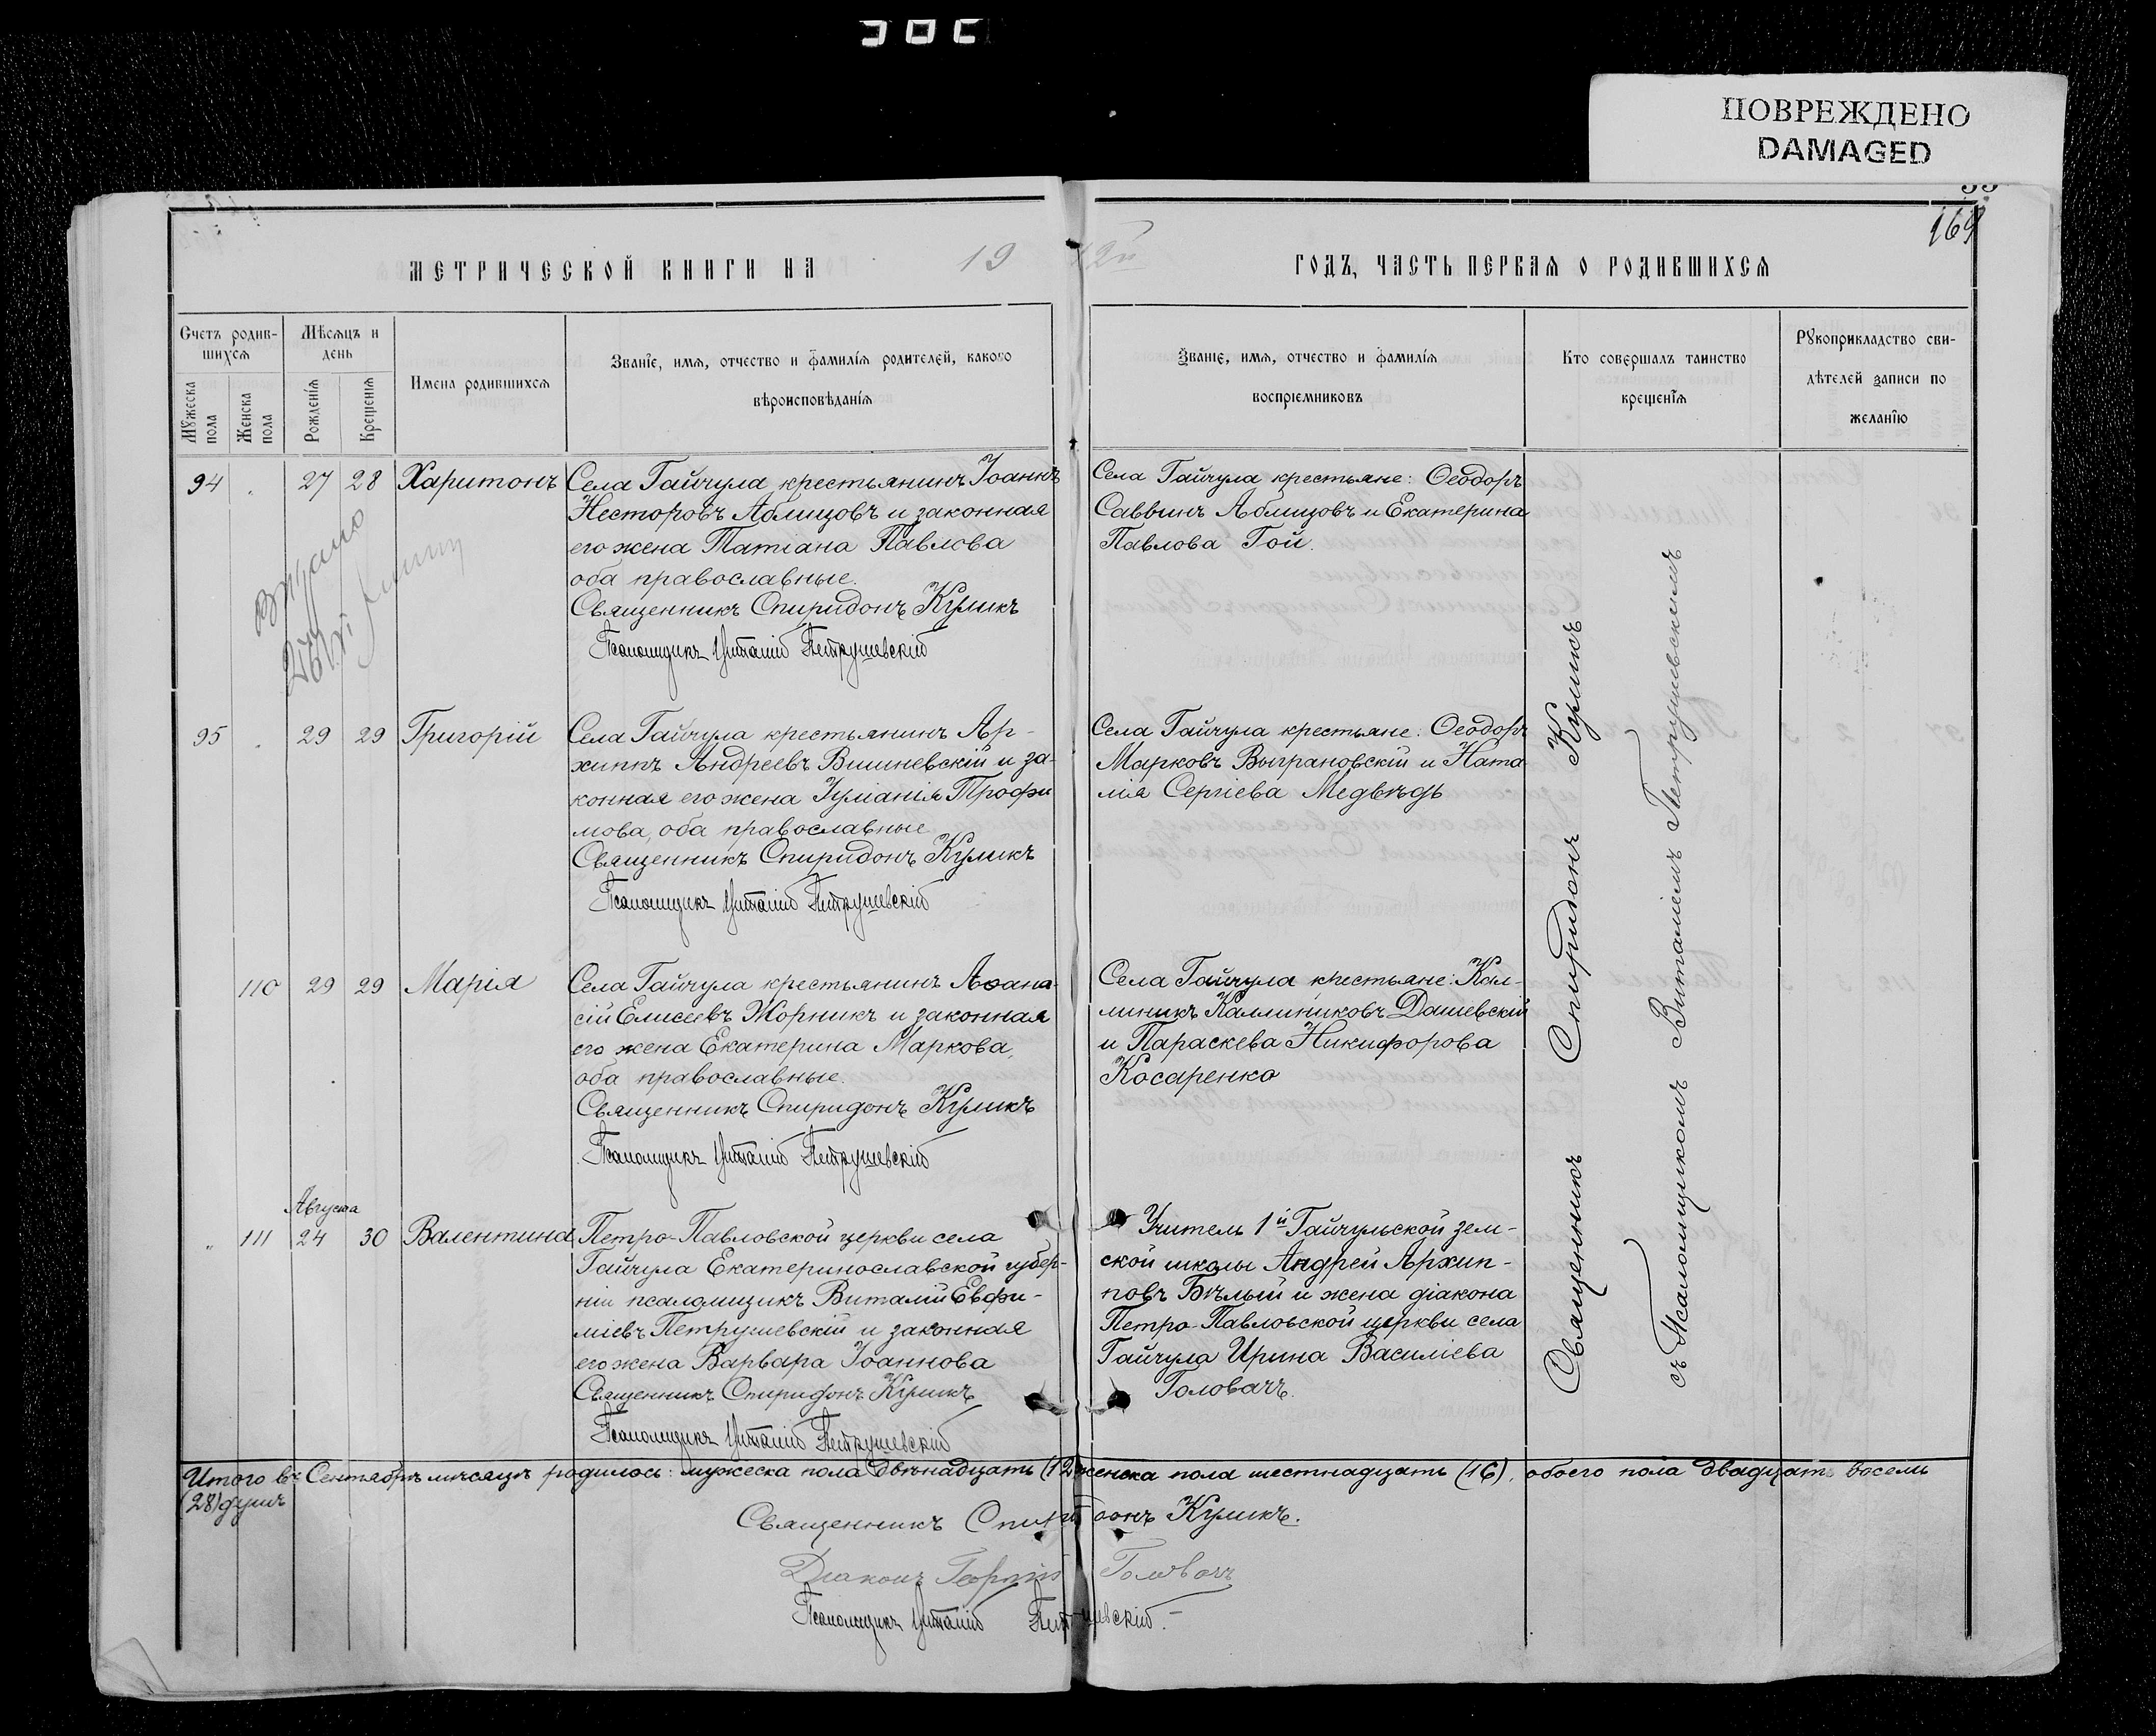 ПОВРЕЖДЕНО
DAMAGED
169
МЕТРИЧЕСКОЙ КНИГИ НА 19 12й ГОДЪ, ЧАСТЬ ПЕРВАЯ О РОДИВШИХСЯ
Счетъ родив-
шихся
Мужеска пола
Женска пола
Мѣсяцъ и
день
Рожденія
Крещенія
Имена родившихся
Званіе, имя, отчество и фамилія родителей, какого
вѣроисповѣданія
Званіе, имя, отчество и фамилія
воспріемниковъ
Кто совершалъ таинство
крещенія
Рукоприкладство сви-
дѣтелей записи по
желанію
94 27 28 Харитонъ
Села Гайчула крестьянинъ Іоаннъ
Несторовъ Аблицовъ и законная
его жена Татіана Павлова
оба православные.
Священникъ Спиридонъ Куликъ
Псаломщикъ Виталій Петрушевскій
Села Гайчула крестьяне: Ѳеодоръ
Саввинъ Аблицовъ и Екатерина
Павлова Гой.
95 29 29 Григорій
Села Гайчула крестьянинъ Ар-
хиппъ Андреевъ Вишневскій и за-
конная его жена Іуліанія Трофи
мова, оба православные
Священникъ Спиридонъ Куликъ
Псаломщикъ Виталій Петрушевскій
Села Гайчула крестьяне: Ѳеодоръ
Марковъ Выграновскій и Ната
лія Сергіева Медвѣдь
110 29 29 Марія
Села Гайчула крестьянинъ Аѳана-
сій Елисеевъ Жорникъ и законная
его жена Екатерина Маркова,
оба православные.
Священникъ Спиридонъ Куликъ
Псаломщикъ Виталій Петрушевскій
Села Гайчула крестьяне: Кал-
линикъ Каллиниковъ Дашевскій
и Параскева Никифорова
Косаренко
Августа
" 111 24 30 Валентина
Петро-Павловской церкви села
Гайчула Екатеринославской губер-
ніи псаломщикъ Виталій Евфи-
міевъ Петрушевскій и законная
его жена Варвара Іоаннова
Священникъ Спиридонъ Куликъ
Псаломщикъ Виталій Петрушевскій
Учитель 1й Гайчульской зем-
ской школы Андрей Архип-
повъ Бѣлый и жена діакона
Петро-Павловской церкви села
Гайчула Ирина Василіева
Головачъ.
Священникъ Спиридонъ Куликъ
съ Псаломщикомъ Виталіемъ Петрушевскимъ
Итого въ Сентябрѣ мѣсяцѣ родилось: мужеска пола двѣнадцать (12 женска пола шестнадцать (16), обоего пола двадцать восемь
(28) душъ
Священникъ Спиридонъ Куликъ.
Діаконъ Георгій Головачъ
Псаломщикъ Виталій Петрушевскій.